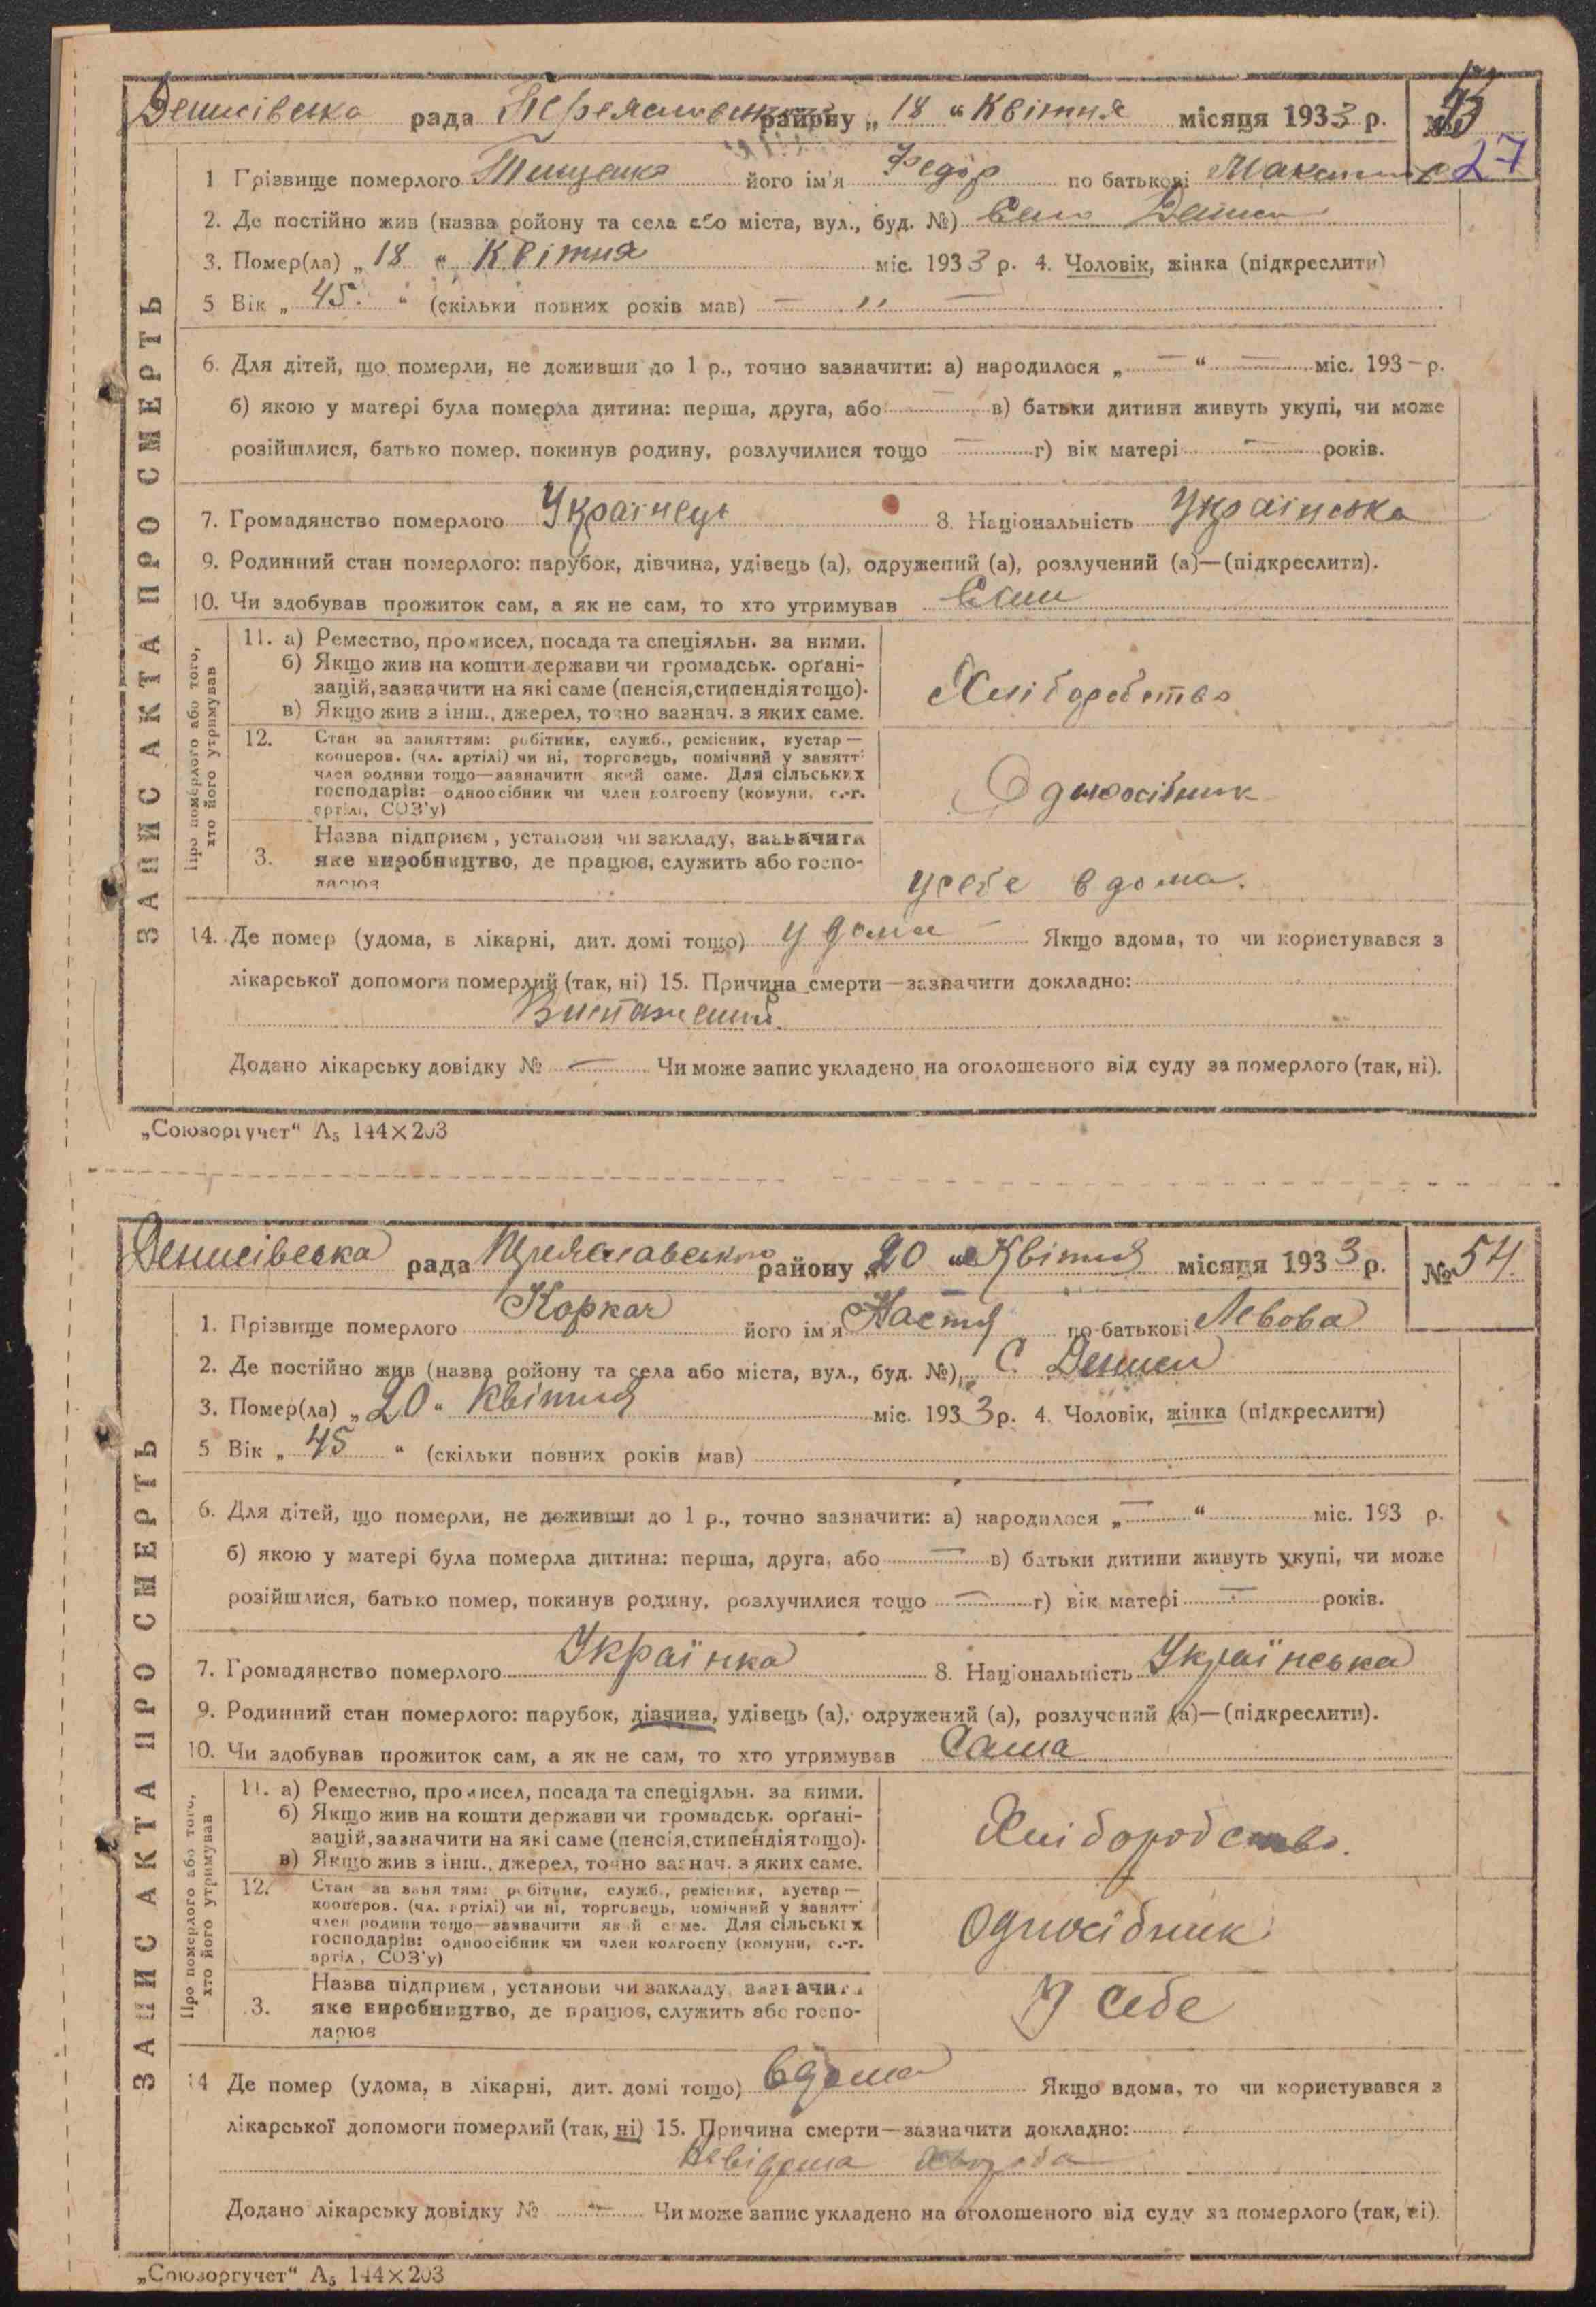 Денисівська рада Переяславського району „ 18 “ Квітня місяця 1933 р. № 53
27
1 Прізвище померлого Тищенко його ім'я Федір по батькові
2. Де постійно жив (назва ройону та села або міста, вул., буд. №) Село Дениси
3. Помер(ла) „ 18 “ Квітня міс. 1933 р. 4. Чоловік, жінка (підкреслити)
5 Вік „ 45. “ (скільки повних років мав) — „ —
6. Для дітей, що померли, не доживши до 1 р., точно зазначити: а) народилося „ — “ — міс. 193 – р.
б) якою у матері була померла дитина: перша, друга, або — в) батьки дитини живуть укупі, чи може
розійшлися, батько помер, покинув родину, розлучилися тощо — г) вік матері — років.
7. Громадянство померлого Українець 8. Національність Українська
9. Родинний стан померлого: парубок, дівчина, удівець (а), одружений (а), розлучений (а)—(підкреслити).
10. Чи здобував прожиток сам, а як не сам, то хто утримував Сам
ЗАПИС АКТА ПРО СМЕРТЬ
Про померлого або того, хто його утримував
11. а) Ремество, промисел, посада та спеціяльн. за ними.
б) Якщо жив на кошти держави чи громадськ. орґані-
зацій, зазначити на які саме (пенсія, стипендія тощо).
в) Якщо жив з інш., джерел, точно зазнач. з яких саме.
Хліборобство
12. Стан за заняттям: робітник, служб., ремісник, кустар—
кооперов. (чл. артілі) чи ні, торговець, помічний у занятт
член родини тощо—зазначити який саме. Для сільських
господарів: одноосібник чи член колгоспу (комуни, с.-г.
артіл, СОЗ'у)
Одноосібник
3. Назва підприєм, установи чи закладу, зазначити
яке виробництво, де працює, служить або госпо-
дарює
у себе вдома.
14. Де помер (удома, в лікарні, дит. домі тощо) у дома — Якщо вдома, то чи користувався з
лікарської допомоги померлий (так, ні) 15. Причина смерти—зазначити докладно:
Додано лікарську довідку № — Чи може запис укладено на оголошеного від суду за померлого (так, ні).
„Союзоргучет“ А₅ 144×203
Денисівська рада Переяславського району „ 20 “ Квітня місяця 1933 р. № 54.
1. Прізвище померлого Коркач його ім'я Настя по батькові Левова
2. Де постійно жив (назва ройону та села або міста, вул., буд. №) С. Дениси
3. Помер(ла) „ 20 “ Квітня міс. 1933 р. 4. Чоловік, жінка (підкреслити)
5 Вік „ 45 “ (скільки повних років мав)
6. Для дітей, що померли, не доживши до 1 р., точно зазначити: а) народилося „ — “ міс. 193 р.
б) якою у матері була померла дитина: перша, друга, або — в) батьки дитини живуть укупі, чи може
розійшлися, батько помер, покинув родину, розлучилися тощо — г) вік матері — років.
7. Громадянство померлого Українка 8. Національність Українська
9. Родинний стан померлого: парубок, дівчина, удівець (а), одружений (а), розлучений (а)—(підкреслити).
10. Чи здобував прожиток сам, а як не сам, то хто утримував Сама
ЗАПИС АКТА ПРО СМЕРТЬ
Про померлого або того, хто його утримував
11. а) Ремество, промисел, посада та спеціяльн. за ними.
б) Якщо жив на кошти держави чи громадськ. орґані-
зацій, зазначити на які саме (пенсія, стипендія тощо).
в) Якщо жив з інш., джерел, точно зазнач. з яких саме.
Хліборобство.
12. Стан за заняттям: робітник, служб., ремісник, кустар—
кооперов. (чл. артілі) чи ні, торговець, помічний у занятт
член родини тощо—зазначити який саме. Для сільських
господарів: одноосібник чи член колгоспу (комуни, с.-г.
артіл, СОЗ'у)
Одноосібник
3. Назва підприєм, установи чи закладу, зазначити
яке виробництво, де працює, служить або госпо-
дарює
У себе
14 Де помер (удома, в лікарні, дит. домі тощо) вдома Якщо вдома, то чи користувався з
лікарської допомоги померлий (так, ні) 15. Причина смерти—зазначити докладно:
Невідома хвороба
Додано лікарську довідку № — Чи може запис укладено на оголошеного від суду за померлого (так, ні).
„Союзоргучет“ А₅ 144×203